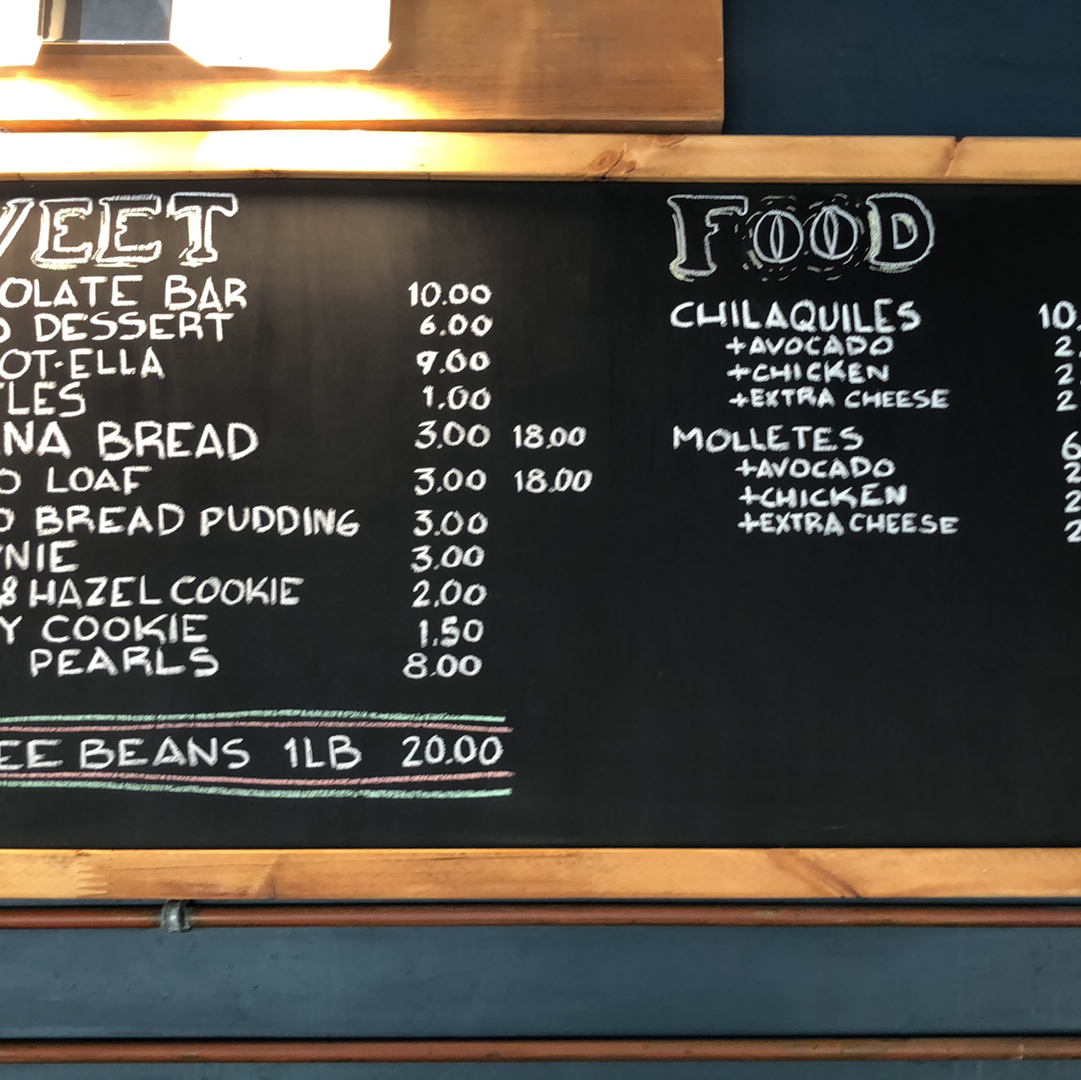 WEET
OLATE BAR 10.00
O DESSERT 6.00
OT-ELLA 9.00
TLES 1.00
NA BREAD 3.00 18.00
O LOAF 3.00 18.00
O BREAD PUDDING 3.00
NIE 3.00
& HAZEL COOKIE 2.00
Y COOKIE 1.50
PEARLS 8.00
EE BEANS 1LB 20.00
FOOD
CHILAQUILES 10.
+AVOCADO 2.
+CHICKEN 2
+EXTRA CHEESE 2
MOLLETES 6
+AVOCADO 2
+CHICKEN 2
+EXTRA CHEESE 2